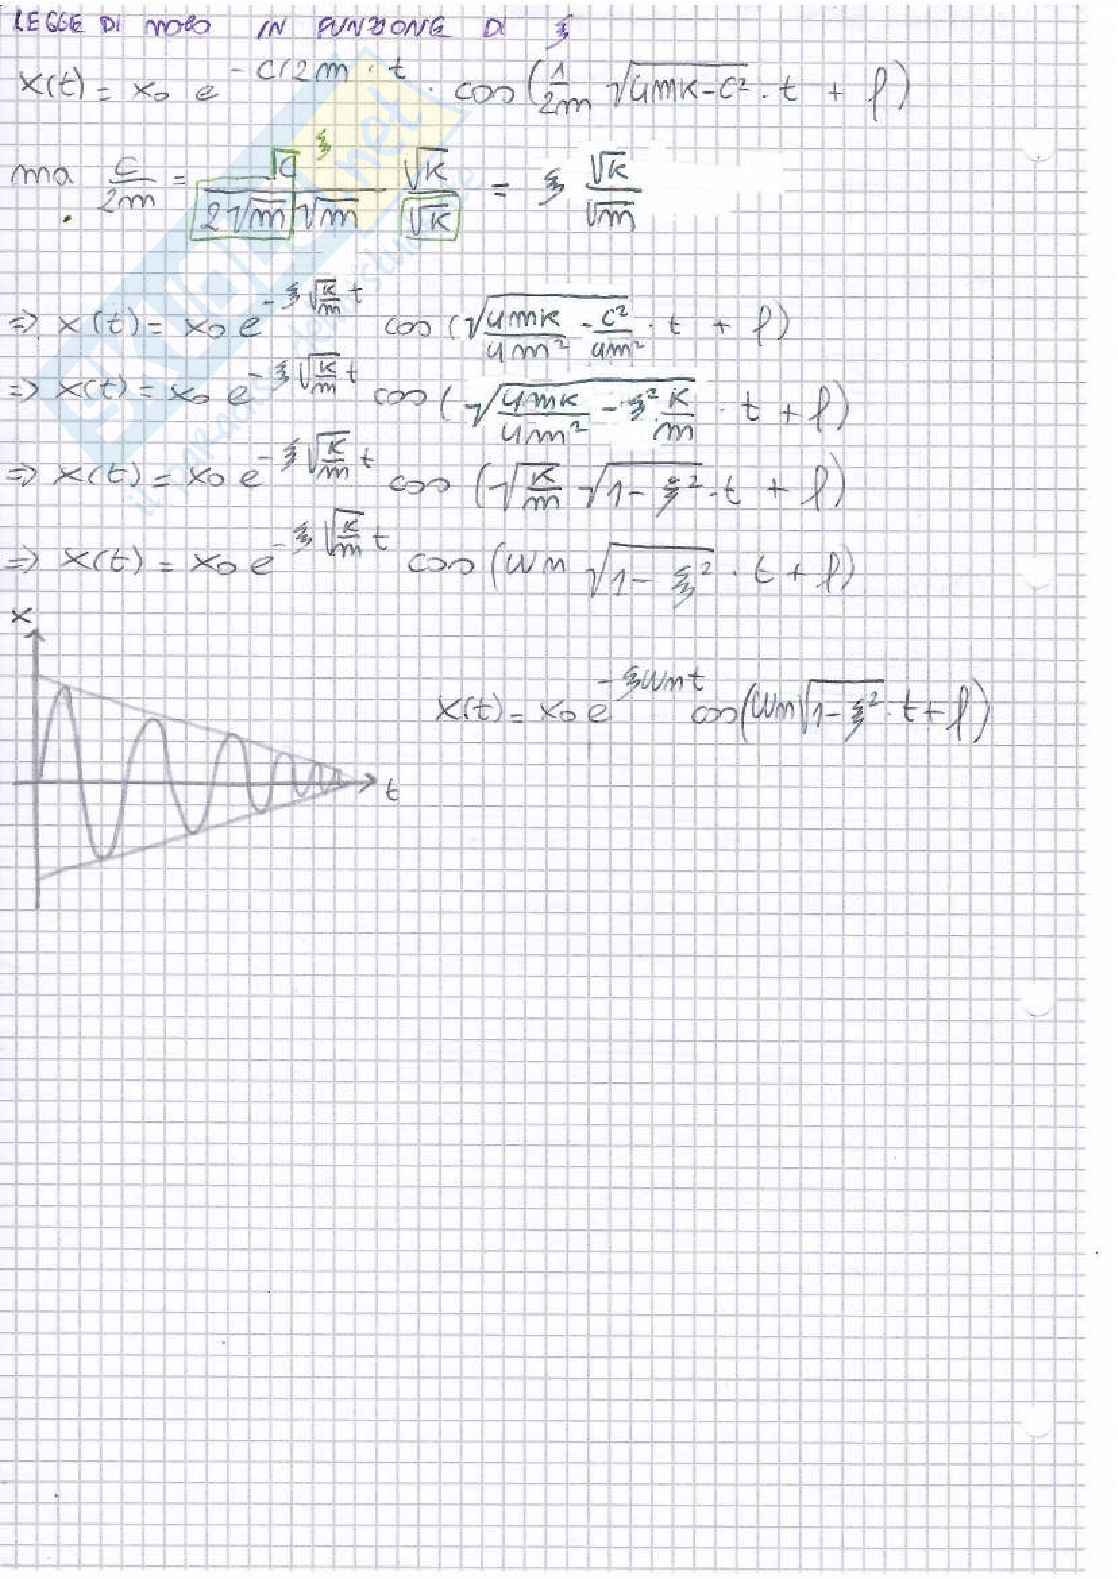 LEGGE DI MOTO IN FUNZIONE DI ξ
x(t) = x₀ e^(-c/2m · t) · cos(1/2m √(4mk-c²) · t + φ)
ma c/2m = c/(2√m √m) √k/√k = ξ √k/√m
ξ
⇒ x(t) = x₀ e^(-ξ√(k/m) t) cos(√(4mk/4m² - c²/4m²) · t + φ)
⇒ x(t) = x₀ e^(-ξ√(k/m) t) cos(√(4mk/4m² - ξ² k/m) · t + φ)
⇒ x(t) = x₀ e^(-ξ√(k/m) t) cos(√(k/m) √(1-ξ²) · t + φ)
⇒ x(t) = x₀ e^(-ξ√(k/m) t) cos(ωn √(1-ξ²) · t + φ)
x
x(t) = x₀ e^(-ξωnt) cos(ωn√(1-ξ²) · t + φ)
t